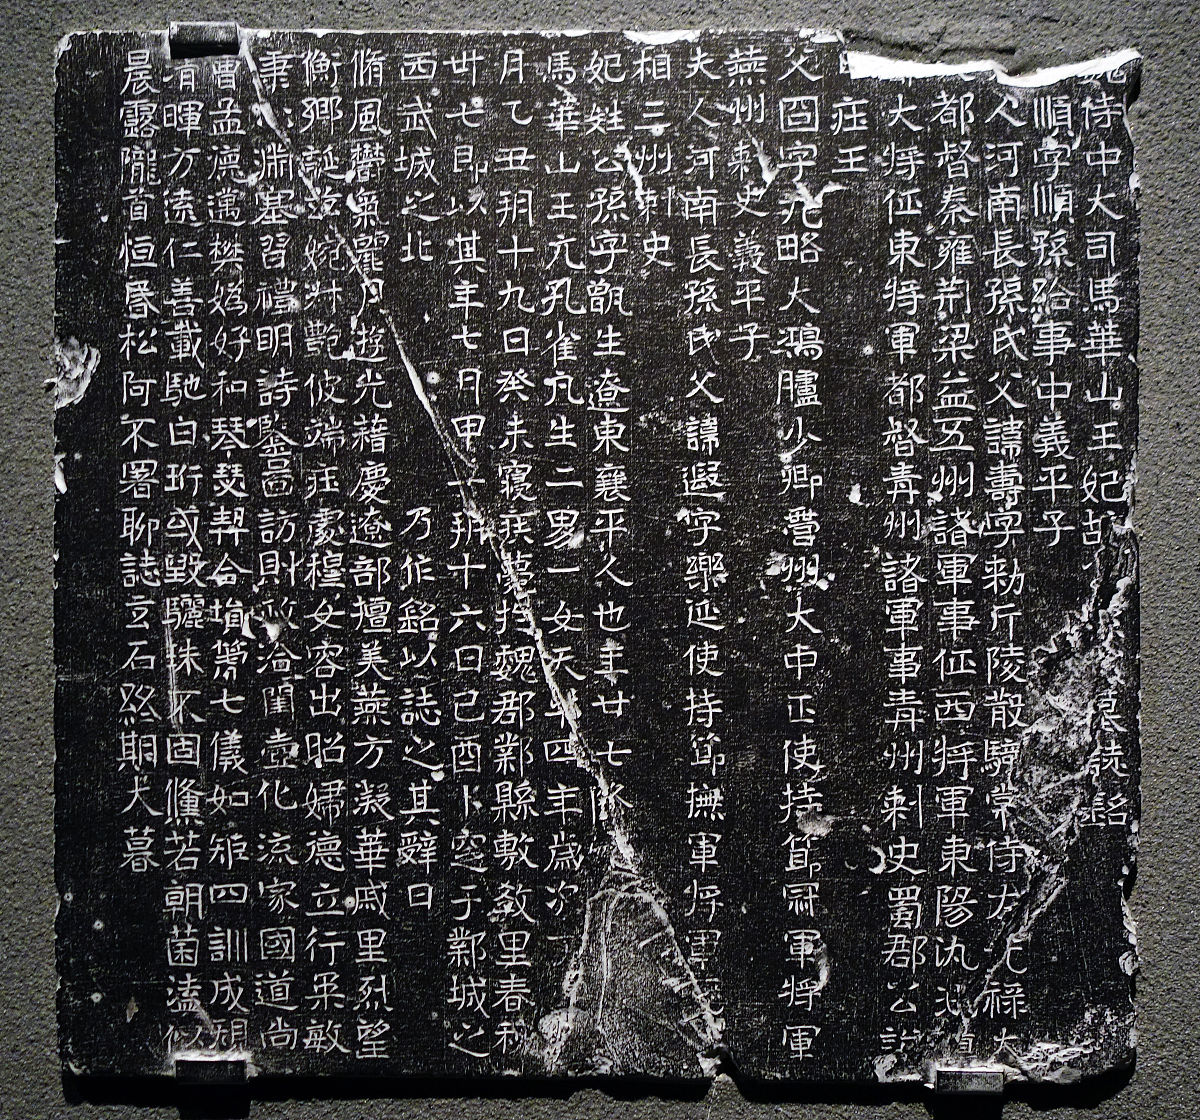 魏侍中大司馬華山王妃故公孫氏墓誌銘
順字順孫給事中義平子
人河南長孫氏父諱壽字勑斤陵散騎常侍左光祿大
都督秦雍荊梁益五州諸軍事征西將軍東陽
大將征東將軍都督青州諸軍事青州刺史蜀郡公諡
曰莊王
父冏字九略大鴻臚少卿營州大中正使持節冠軍將軍
燕州刺史義平子
夫人河南長孫氏父諱遐字樂延使持節撫軍將軍
相三州刺史
妃姓公孫字甑生遼東襄平人也年廿七降
馬華山王亢孔雀凡生二男一女天平四年歲次丁
月乙丑朔十九日癸未寢疾薨於魏郡鄴縣敷教里春秋
卅七即以其年七月甲十朔十六日己酉卜窆于鄴城之
西武城之北 乃作銘以誌之其辭曰
脩風鬱氣麗月遊光藉慶遼部擅美燕方凝華戚里烈望
衡鄉誕茲婉淑艷彼端莊處穆女容出昭婦德立行柔敏
秉心淵塞習禮明詩鑒啚訪則政洽閨壼化流家國道尚
曹孟德邁樊嬀好和琴瑟契合塤篪七儀如矩四訓成規
有暉方遠仁善載馳白珩或毀驪珠不固儵若朝菌溘似
晨露隴首恒昏松阿不署聊誌玄石終期大暮